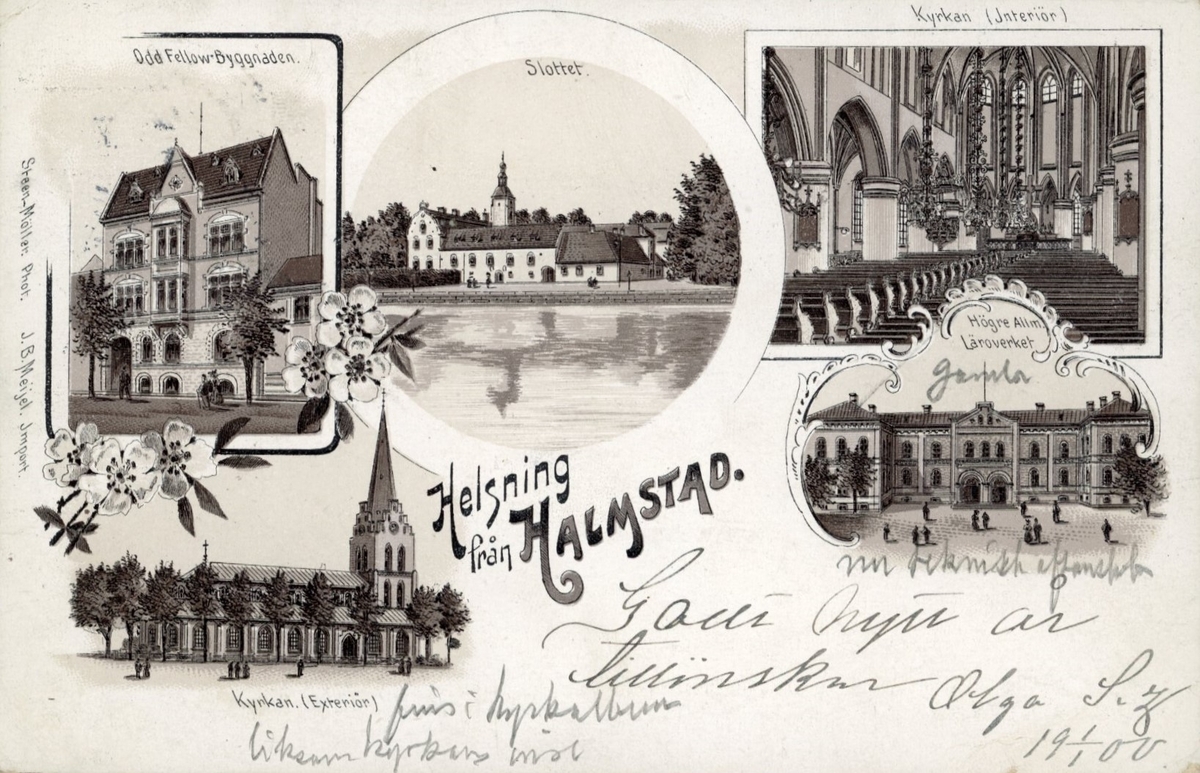 Kyrkan (Jnteriör)
Odd Fellow-Byggnaden.
Slottet.
Steen-Möller. Phot. J.B. Meijel. Jmport.
Högre Allm.
Läroverket
Gamla
Helsning
från HALMSTAD.
nu teknisk
Godt Nytt år
tillönskar
Olga S-z
19 1/1 00.
Kyrkan. (Exteriör)
finns i kyrkalbum
liksom kyrkans